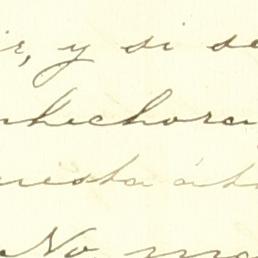 ir, y si se
nhechora
uesta á
No